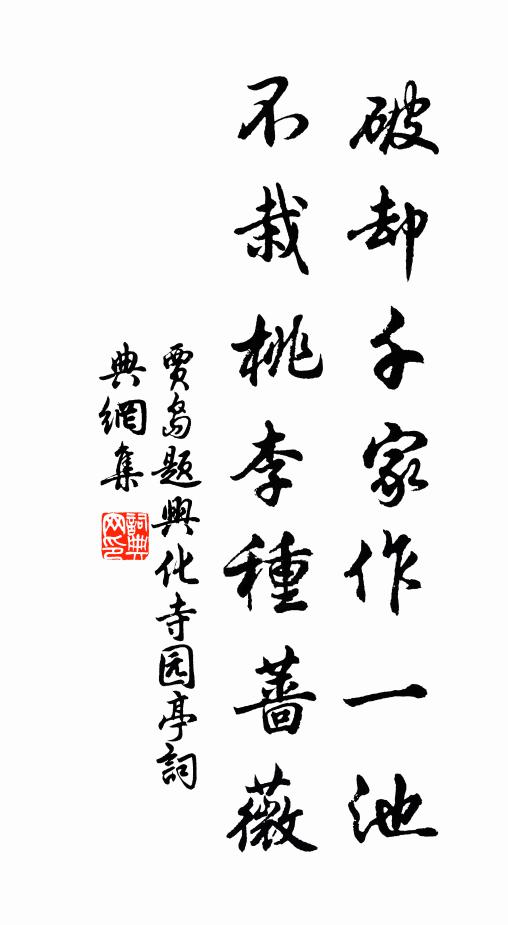 破却千家作一池
不栽桃李種薔薇
賈島题興化寺园亭詞
典網集
詞典
网印